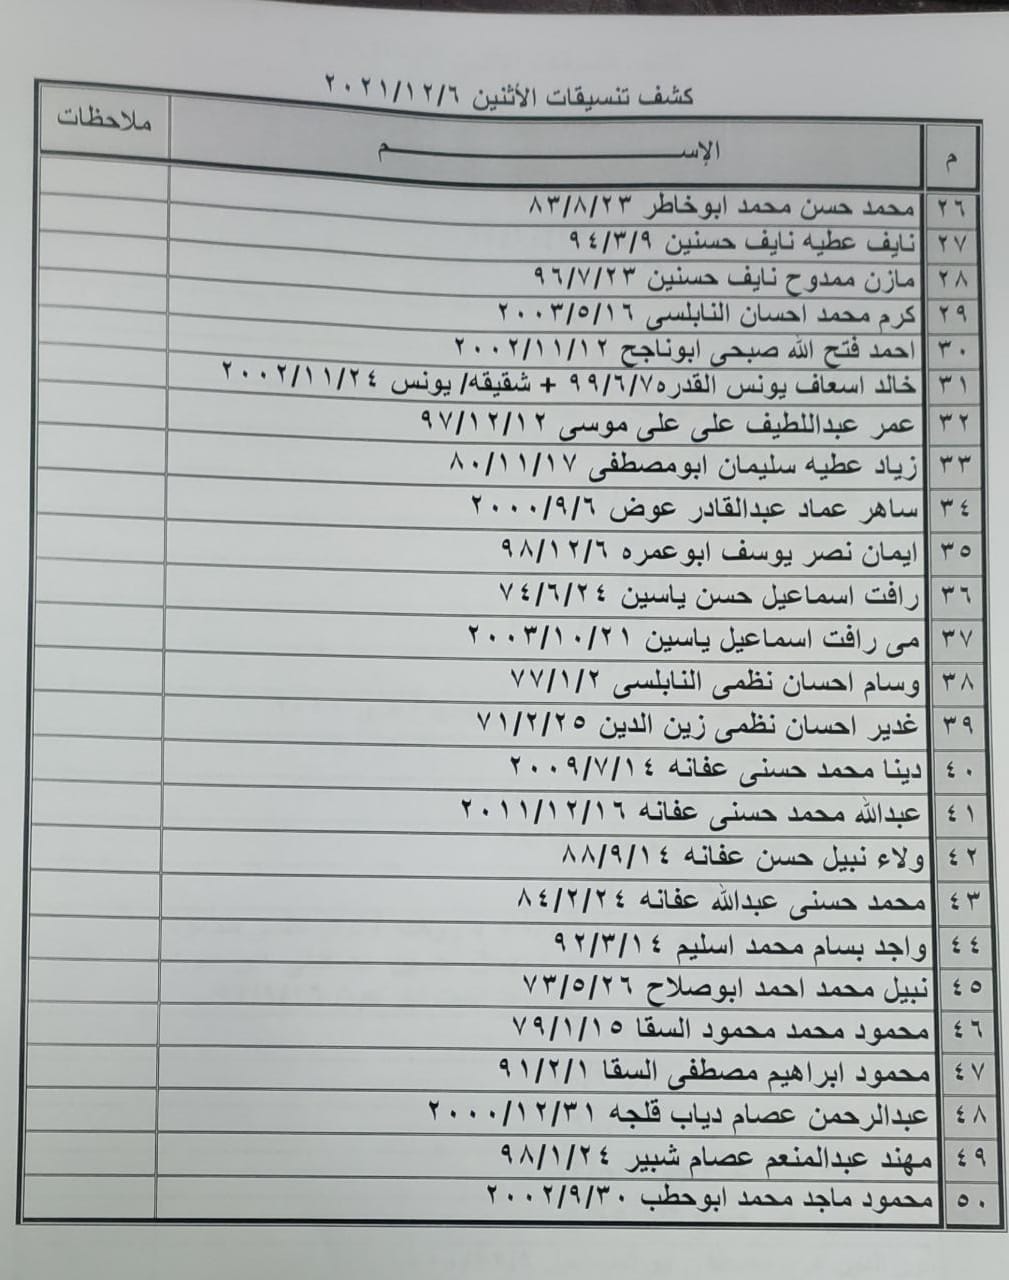 كشف تنسيقات الأثنين ٢٠٢١/١٢/٦
م الإســـــــم ملاحظات
٢٦ محمد حسن محمد ابوخاطر ٨٣/٨/٢٣
٢٧ نايف عطيه نايف حسنين ٩٤/٣/٩
٢٨ مازن ممدوح نايف حسنين ٩٦/٧/٢٣
٢٩ كرم محمد احسان النابلسى ٢٠٠٣/٥/١٦
٣٠ احمد فتح الله صبحى ابوناجح ٢٠٠٢/١١/١٢
٣١ خالد اسعاف يونس القدره٩٩/٦/٧ + شقيقه/ يونس ٢٠٠٢/١١/٢٤
٣٢ عمر عبداللطيف على على موسى ٩٧/١٢/١٢
٣٣ زياد عطيه سليمان ابومصطفى ٨٠/١١/١٧
٣٤ ساهر عماد عبدالقادر عوض ٢٠٠٠/٩/٦
٣٥ ايمان نصر يوسف ابوعمره ٩٨/١٢/٦
٣٦ رافت اسماعيل حسن ياسين ٧٤/٦/٢٤
٣٧ مى رافت اسماعيل ياسين ٢٠٠٣/١٠/٢١
٣٨ وسام احسان نظمى النابلسى ٧٧/١/٢
٣٩ غدير احسان نظمى زين الدين ٧١/٢/٢٥
٤٠ دينا محمد حسنى عفانه ٢٠٠٩/٧/١٤
٤١ عبدالله محمد حسنى عفانه ٢٠١١/١٢/١٦
٤٢ ولاء نبيل حسن عفانه ٨٨/٩/١٤
٤٣ محمد حسنى عبدالله عفانه ٨٤/٢/٢٤
٤٤ واجد بسام محمد اسليم ٩٢/٣/١٤
٤٥ نبيل محمد احمد ابوصلاح ٧٣/٥/٢٦
٤٦ محمود محمد محمود السقا ٧٩/١/١٥
٤٧ محمود ابراهيم مصطفى السقا ٩١/٢/١
٤٨ عبدالرحمن عصام دياب قلجه ٢٠٠٠/١٢/٣١
٤٩ مهند عبدالمنعم عصام شبير ٩٨/١/٢٤
٥٠ محمود ماجد محمد ابوحطب ٢٠٠٢/٩/٣٠